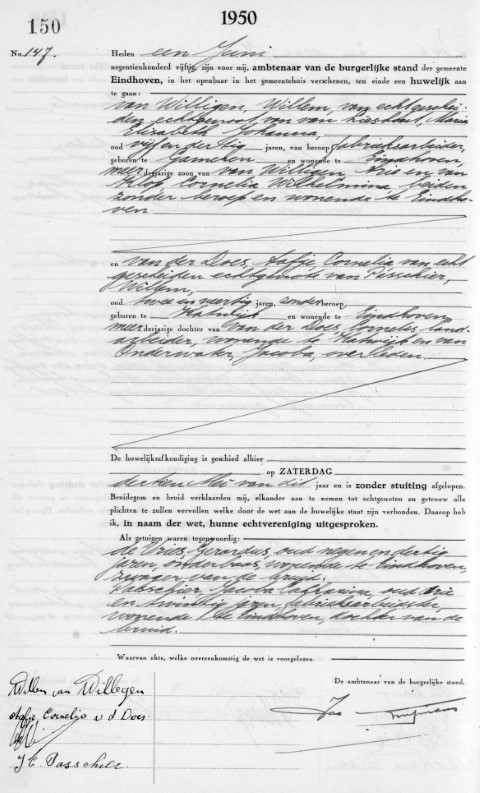 150
1950
No. 147.
Heden een Juni
negentienhonderd vijftig zijn voor mij, ambtenaar van de burgerlijke stand der gemeente
Eindhoven, in het openbaar in het gemeentehuis verschenen, ten einde een huwelijk aan
te gaan:
van Willigen, Willem, van echt gescheiden
echtgenoot van van Maria
Elisabeth Johanna,
oud vijf en dertig jaren, van beroep fabrieksarbeider,
geboren te Gameren en wonende te Eindhoven,
meerderjarige zoon van van Willigen, Aris en van
Cornelia Wilhelmina, beiden
zonder beroep en wonende te Eindho-
ven.
en van der Does, Aafje Cornelia van echt
gescheiden echtgenoote van Passchier,
Willem,
oud twee en veertig jaren, zonder beroep,
geboren te Katwijk en wonende te Eindhoven,
meerderjarige dochter van van der Does, Cornelis, land-
arbeider, wonende te Katwijk en van
Onderwater, Jacoba, overleden.
De huwelijksafkondiging is geschied alhier
op ZATERDAG
dertien Mei van dit jaar en is zonder stuiting afgelopen.
Bruidegom en bruid verklaarden mij, elkander aan te nemen tot echtgenoten en getrouw alle
plichten te zullen vervullen welke door de wet aan de huwelijke staat zijn verbonden. Daarop heb
ik, in naam der wet, hunne echtvereniging uitgesproken.
Als getuigen waren tegenwoordig:
de Vries, Gerardus, oud negen en dertig
jaren, onderbaas, wonende te Eindhoven,
zwager van de bruid,
Passchier, Jacoba Catharina, oud drie
en twintig jaren, fabrieksarbeidster,
wonende te Eindhoven, dochter van de
bruid.
Waarvan akte, welke overeenkomstig de wet is voorgelezen.
De ambtenaar van de burgerlijke stand,
Willem van Willegen
Aafje Cornelija v. d. Does
J C Passchier